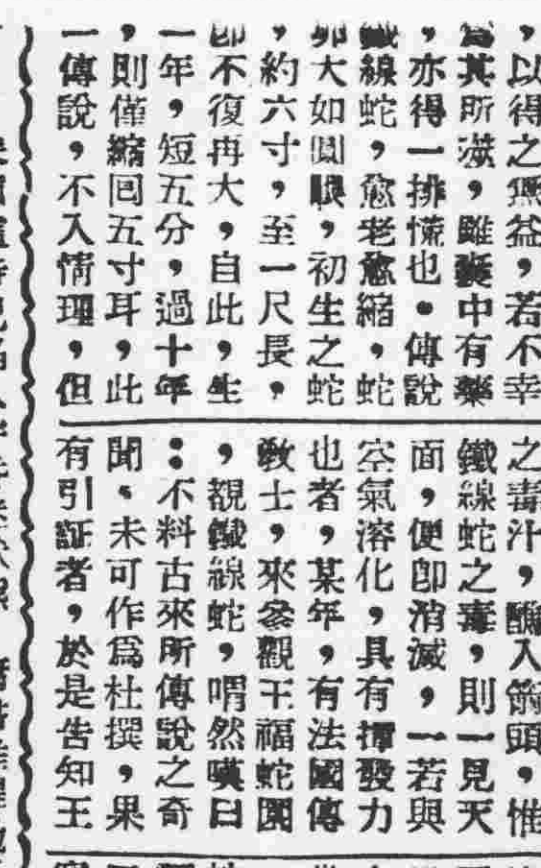 ，以得之無益，若不幸
爲其所滋，雖囊中有藥
，亦得一排慌也。傳說
鐵線蛇，愈老愈縮，蛇
卵大如圓眼，初生之蛇
，約六寸，至一尺長，
卽不復再大，自此，生
一年，短五分，過十年
，則僅縮回五寸耳，此
一傳說，不入情理，但
之毒汁，醮入箭頭，惟
鐵線蛇之毒，則一見天
面，便卽消滅，一若與
空氣溶化，具有揮發力
也者，某年，有法國傳
敎士，來參觀王福蛇園
，覩鐵線蛇，喟然嘆曰
：不料古來所傳說之奇
聞，未可作爲杜撰，果
有引証者，於是告知王